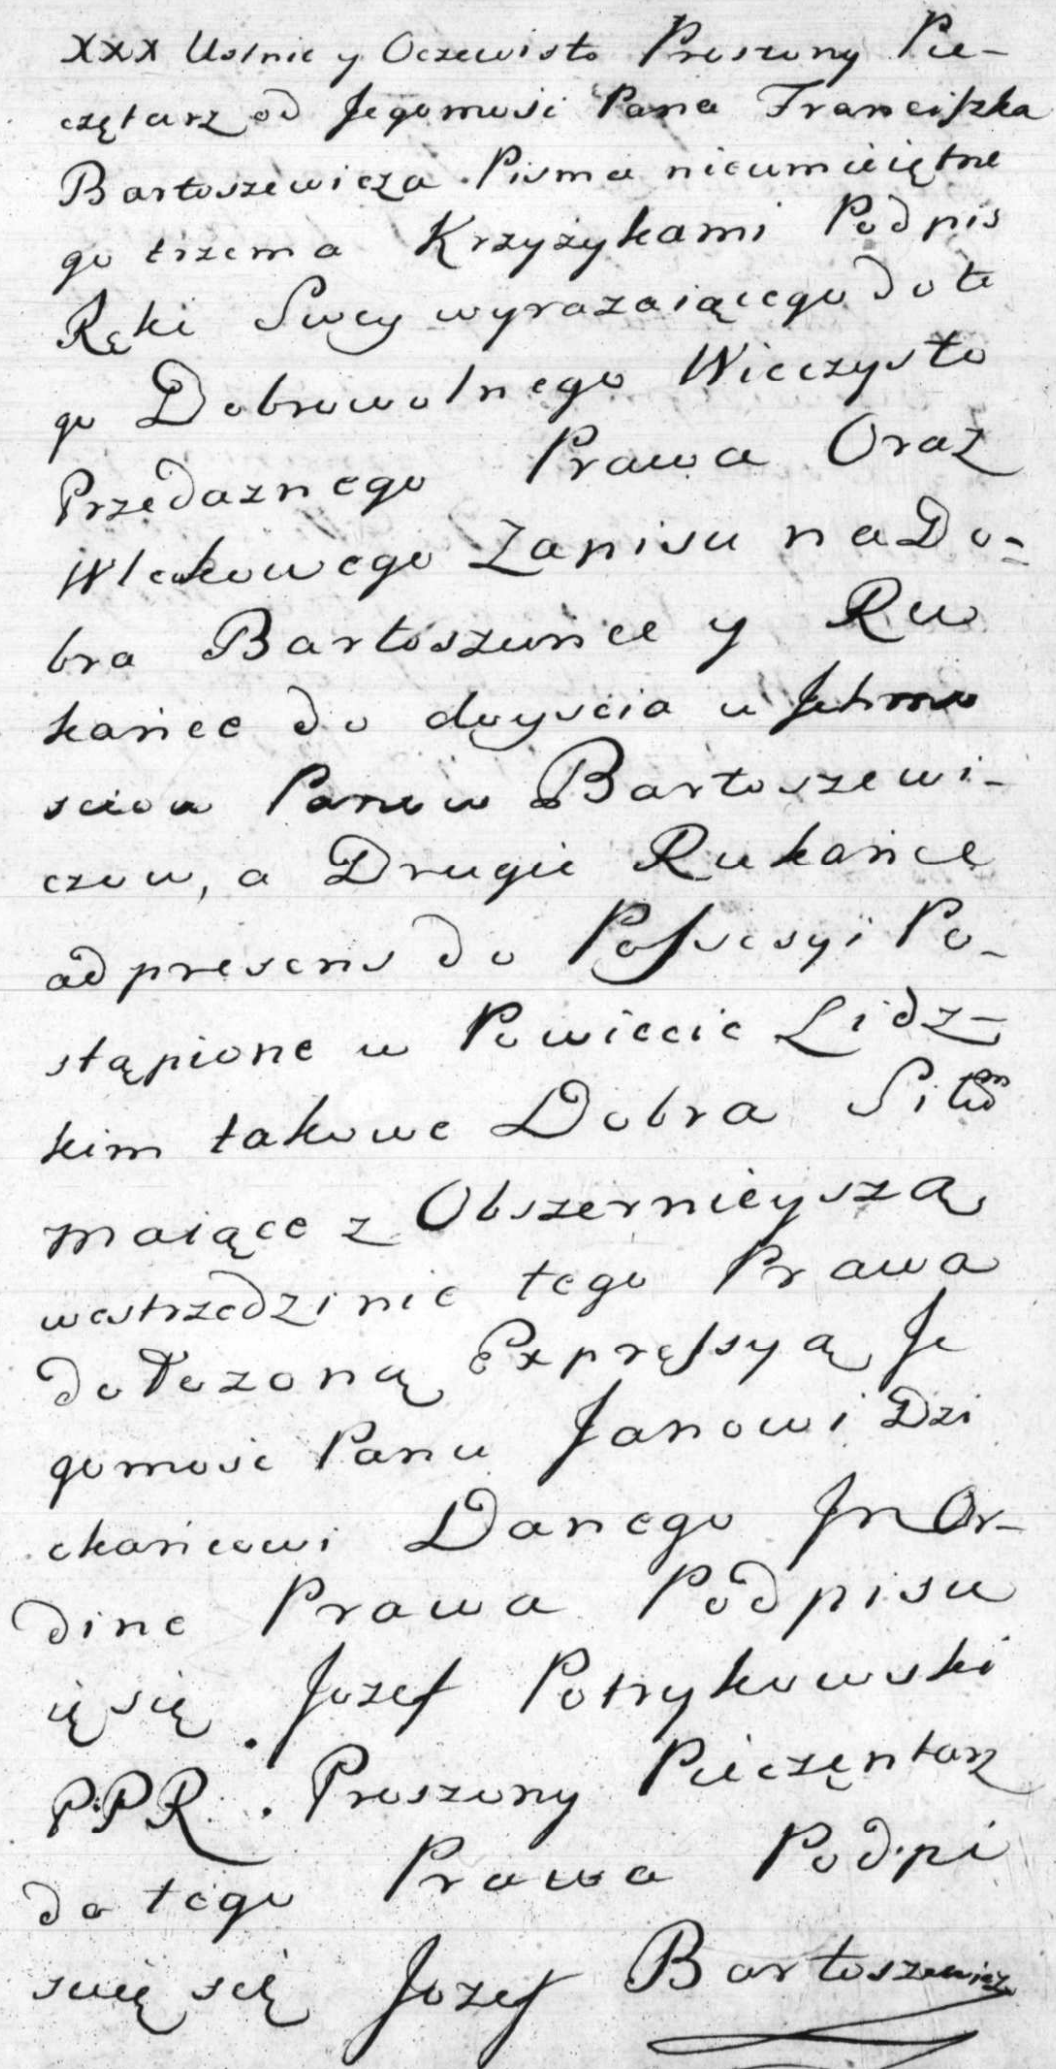 XXX Ustnie y Oczewisto Proszony Pie-
czętarz od Jegomosi Pana Franciszka
Bartoszewicza Pisma nieumieiętne
go trzema Krzyżykami Podpis
Ręki Swey wyrazaiącego do te
go Dobrowolnego Wieczysto
Przedaznego Prawa Oraz
Wlewkowego Zapisu na Do=
bra Bartoszuńce y Ru
kańce do dwyscia u Jchmo
sciow Panow Bartoszewi-
czow, a Drugie Rukańce
ad presens do Possesyi Po-
stąpione w Powiecie Lidz-
kim takowe Dobra
maiące z Obszernieyszą
westrzedzinie tego Prawa
dołozoną Expressyą Je
gomosc Panu Janowi Dzi
ckańcowi Danego Jn Or-
dine Prawa Podpisu
ię się. Jozef Potrykowski
P.P.R. Proszony Pieczęntarz
do tego Prawa Podpi
suię się Jozef Bartoszewicz